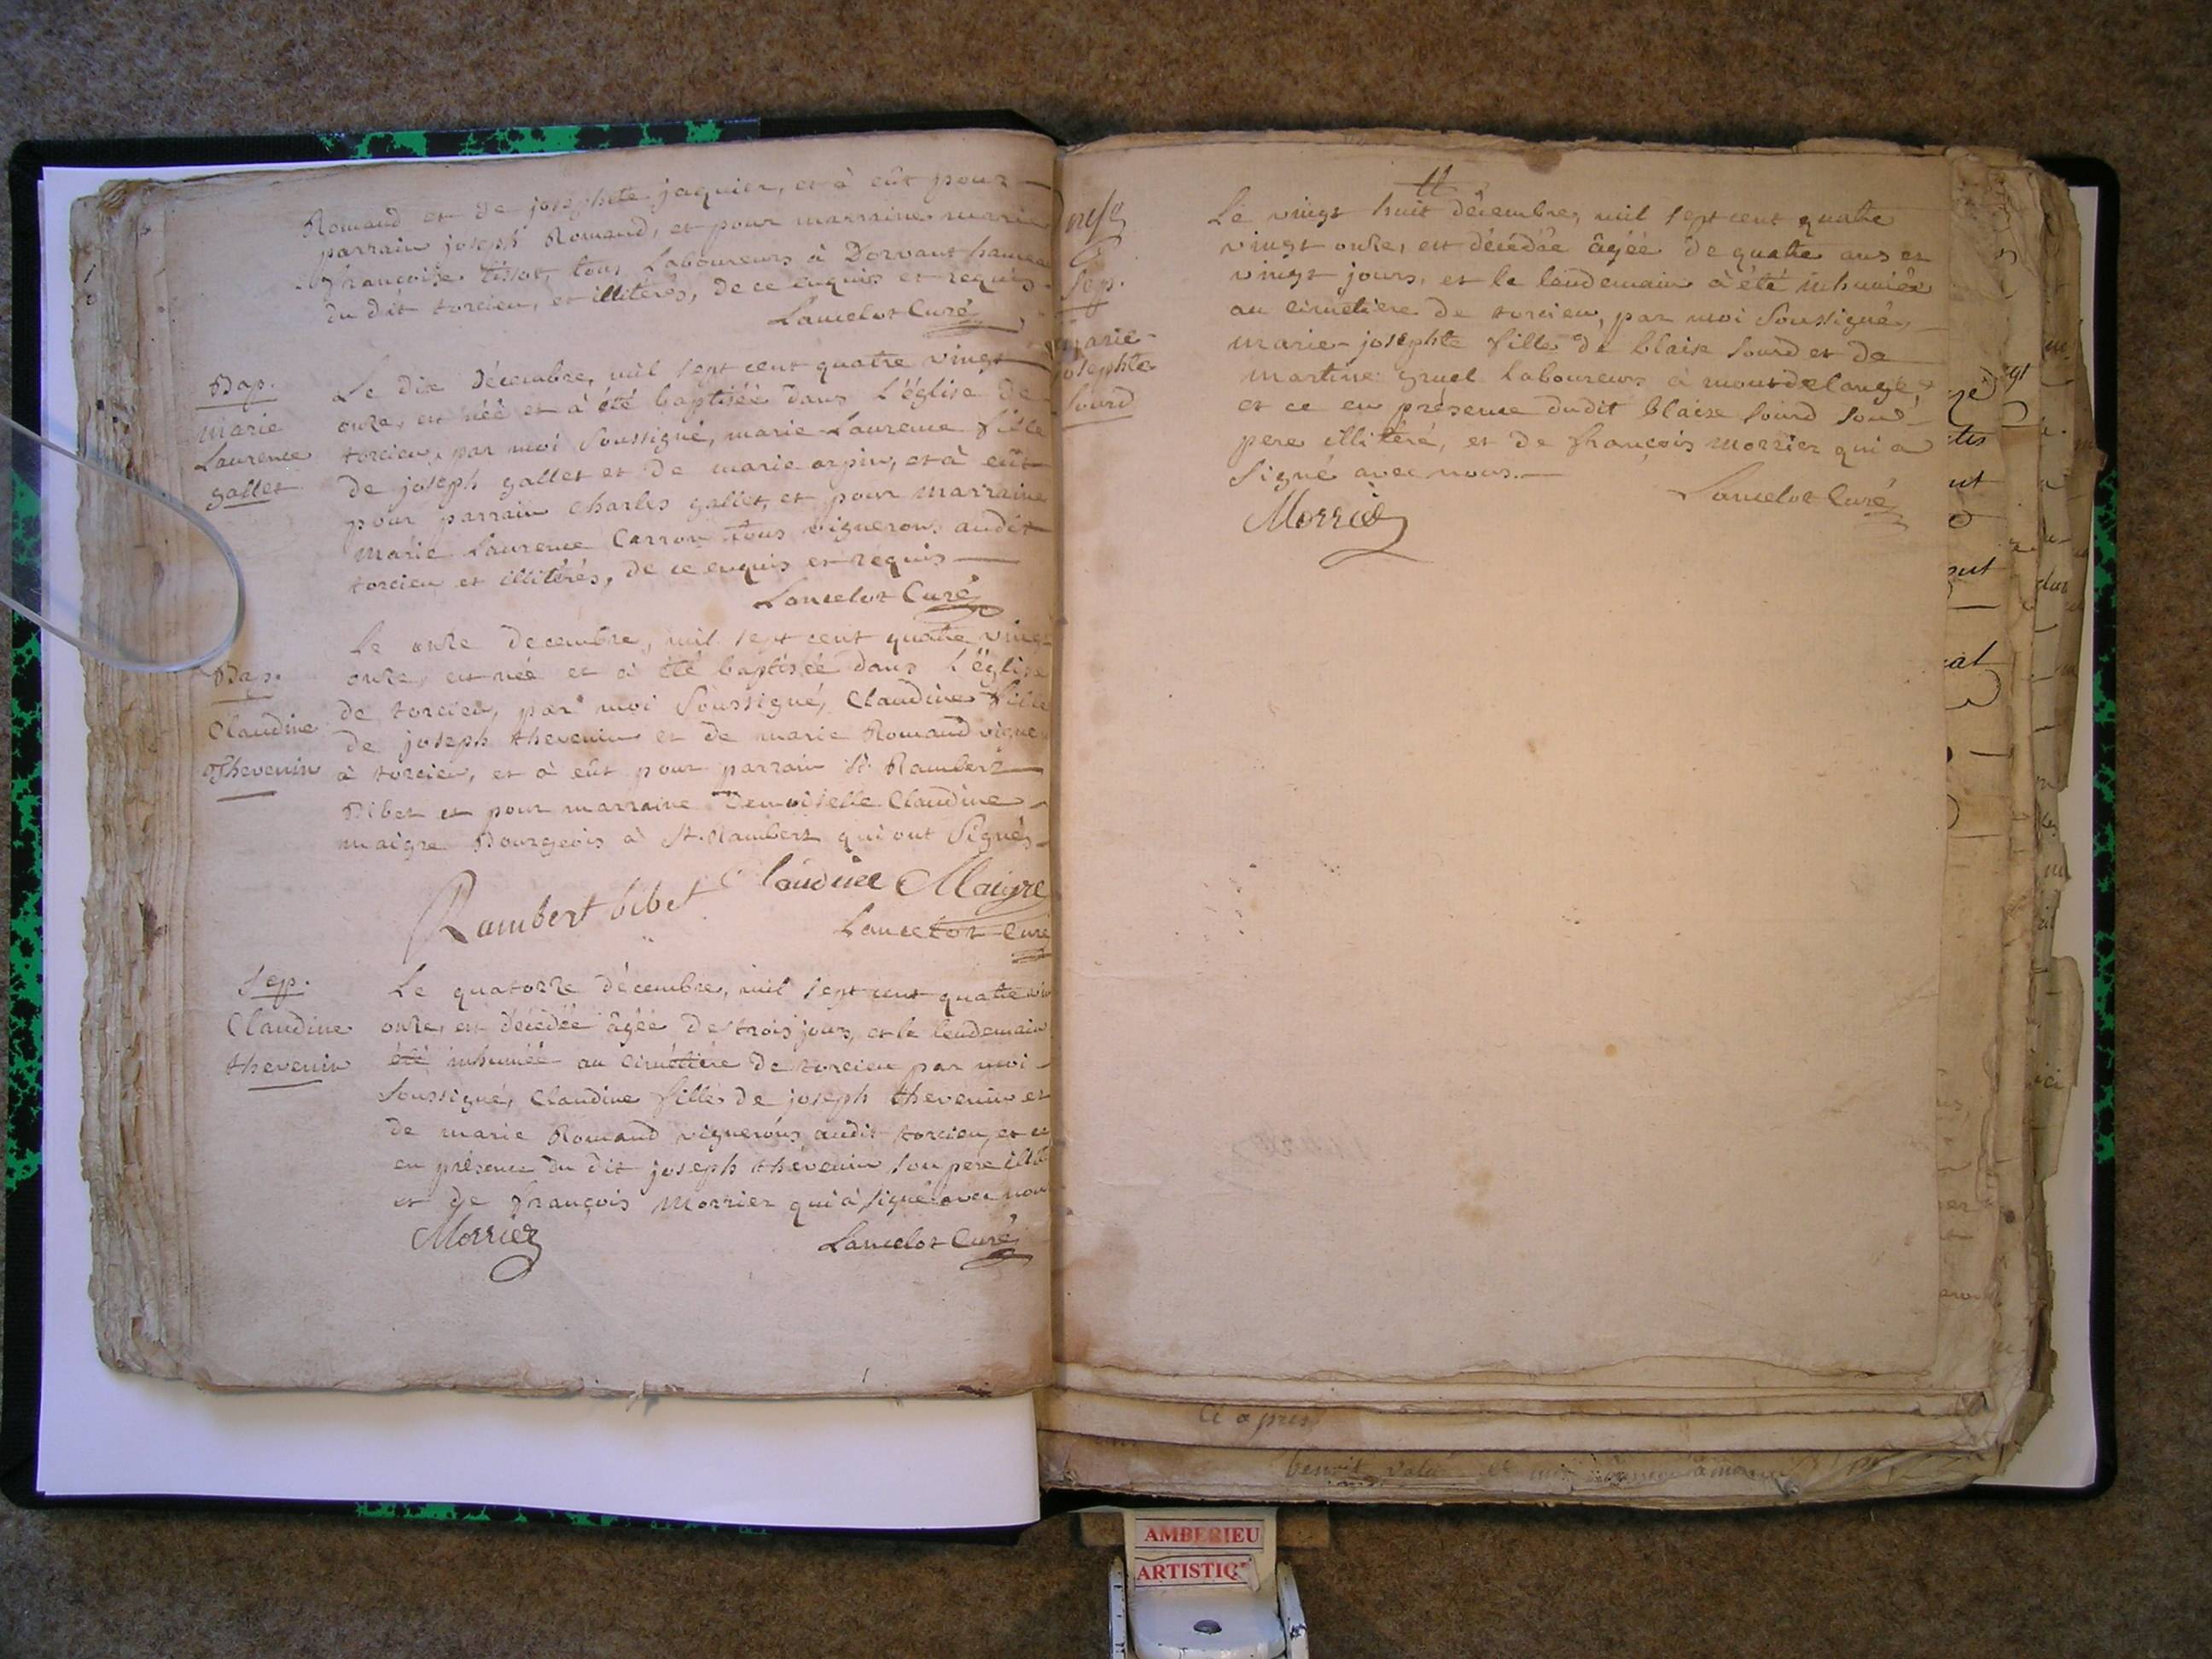 Romand et de josephte jaquier, et à eût pour
parrain joseph Romand, et pour marraine marie
françoise tissot, tous Laboureurs à Dorvant hameau
du dit torcieu, et illitérés, de ce enquis et requis
Lancelot Curé
Bap.
marie
Laurence
gallet
Le dix Décembre, mil sept cent quatre vingt
onze, est néé et à été baptiséé dans L'église de
torcieu, par moi Soussigné, marie Laurence fille
de joseph gallet et de marie arpin, et à eût
pour parrain Charles gallet, et pour marraine
marie Laurence Carron tous vignerons audit
torcieu et illitérés, de ce enquis et requis
Lancelot Curé
Bap.
Claudine
Thevenin
Le onze decembre, mil sept cent quatre vingt
onze, est néé et à été baptiséé dans L'église
de torcieu, par moi Soussigné, Claudine fille
de joseph thevenin et de marie Romand vigne
à torcieu, et à eût pour parrain Sr. Rambert
Bibet et pour marraine Demoiselle Claudine
maigre Bourgeois à St. Rambert qui ont Signés
Rambert bibet Claudine Maigre
Lancelot Curé
Sep.
Claudine
thevenin
Le quatorze décembre, mil sept cent quatre vin
onze, est décédéé âgéé de trois jours, et le lendemain
été inhuméé au cimétière de torcieu par moi
Soussigné, Claudine fille de joseph thevenin et
de marie Romand vignerons audit torcieu, et ce
en présence du dit joseph thévenin son pere illit
et de françois Morrier qui à signé avec nous
Morrier
Lancelot Curé
11
Sep.
marie-
josephte
Sourd
Le vingt huit décembre, mil sept cent quatre
vingt onze, est décédéé âgéé de quatre ans et
vingt jours, et le lendemain à été inhuméé
au cimétière de torcieu, par moi Soussigné,
marie-josephte fille de blaise Sourd et de
martine gruel Laboureurs à montdelange,
et ce en présence dudit blaise Sourd son
pere illitéré, et de françois Morrier qui a
signé avec nous.
Lancelot Curé
Morrier
Ci apres
AMBERIEU
ARTISTIQ